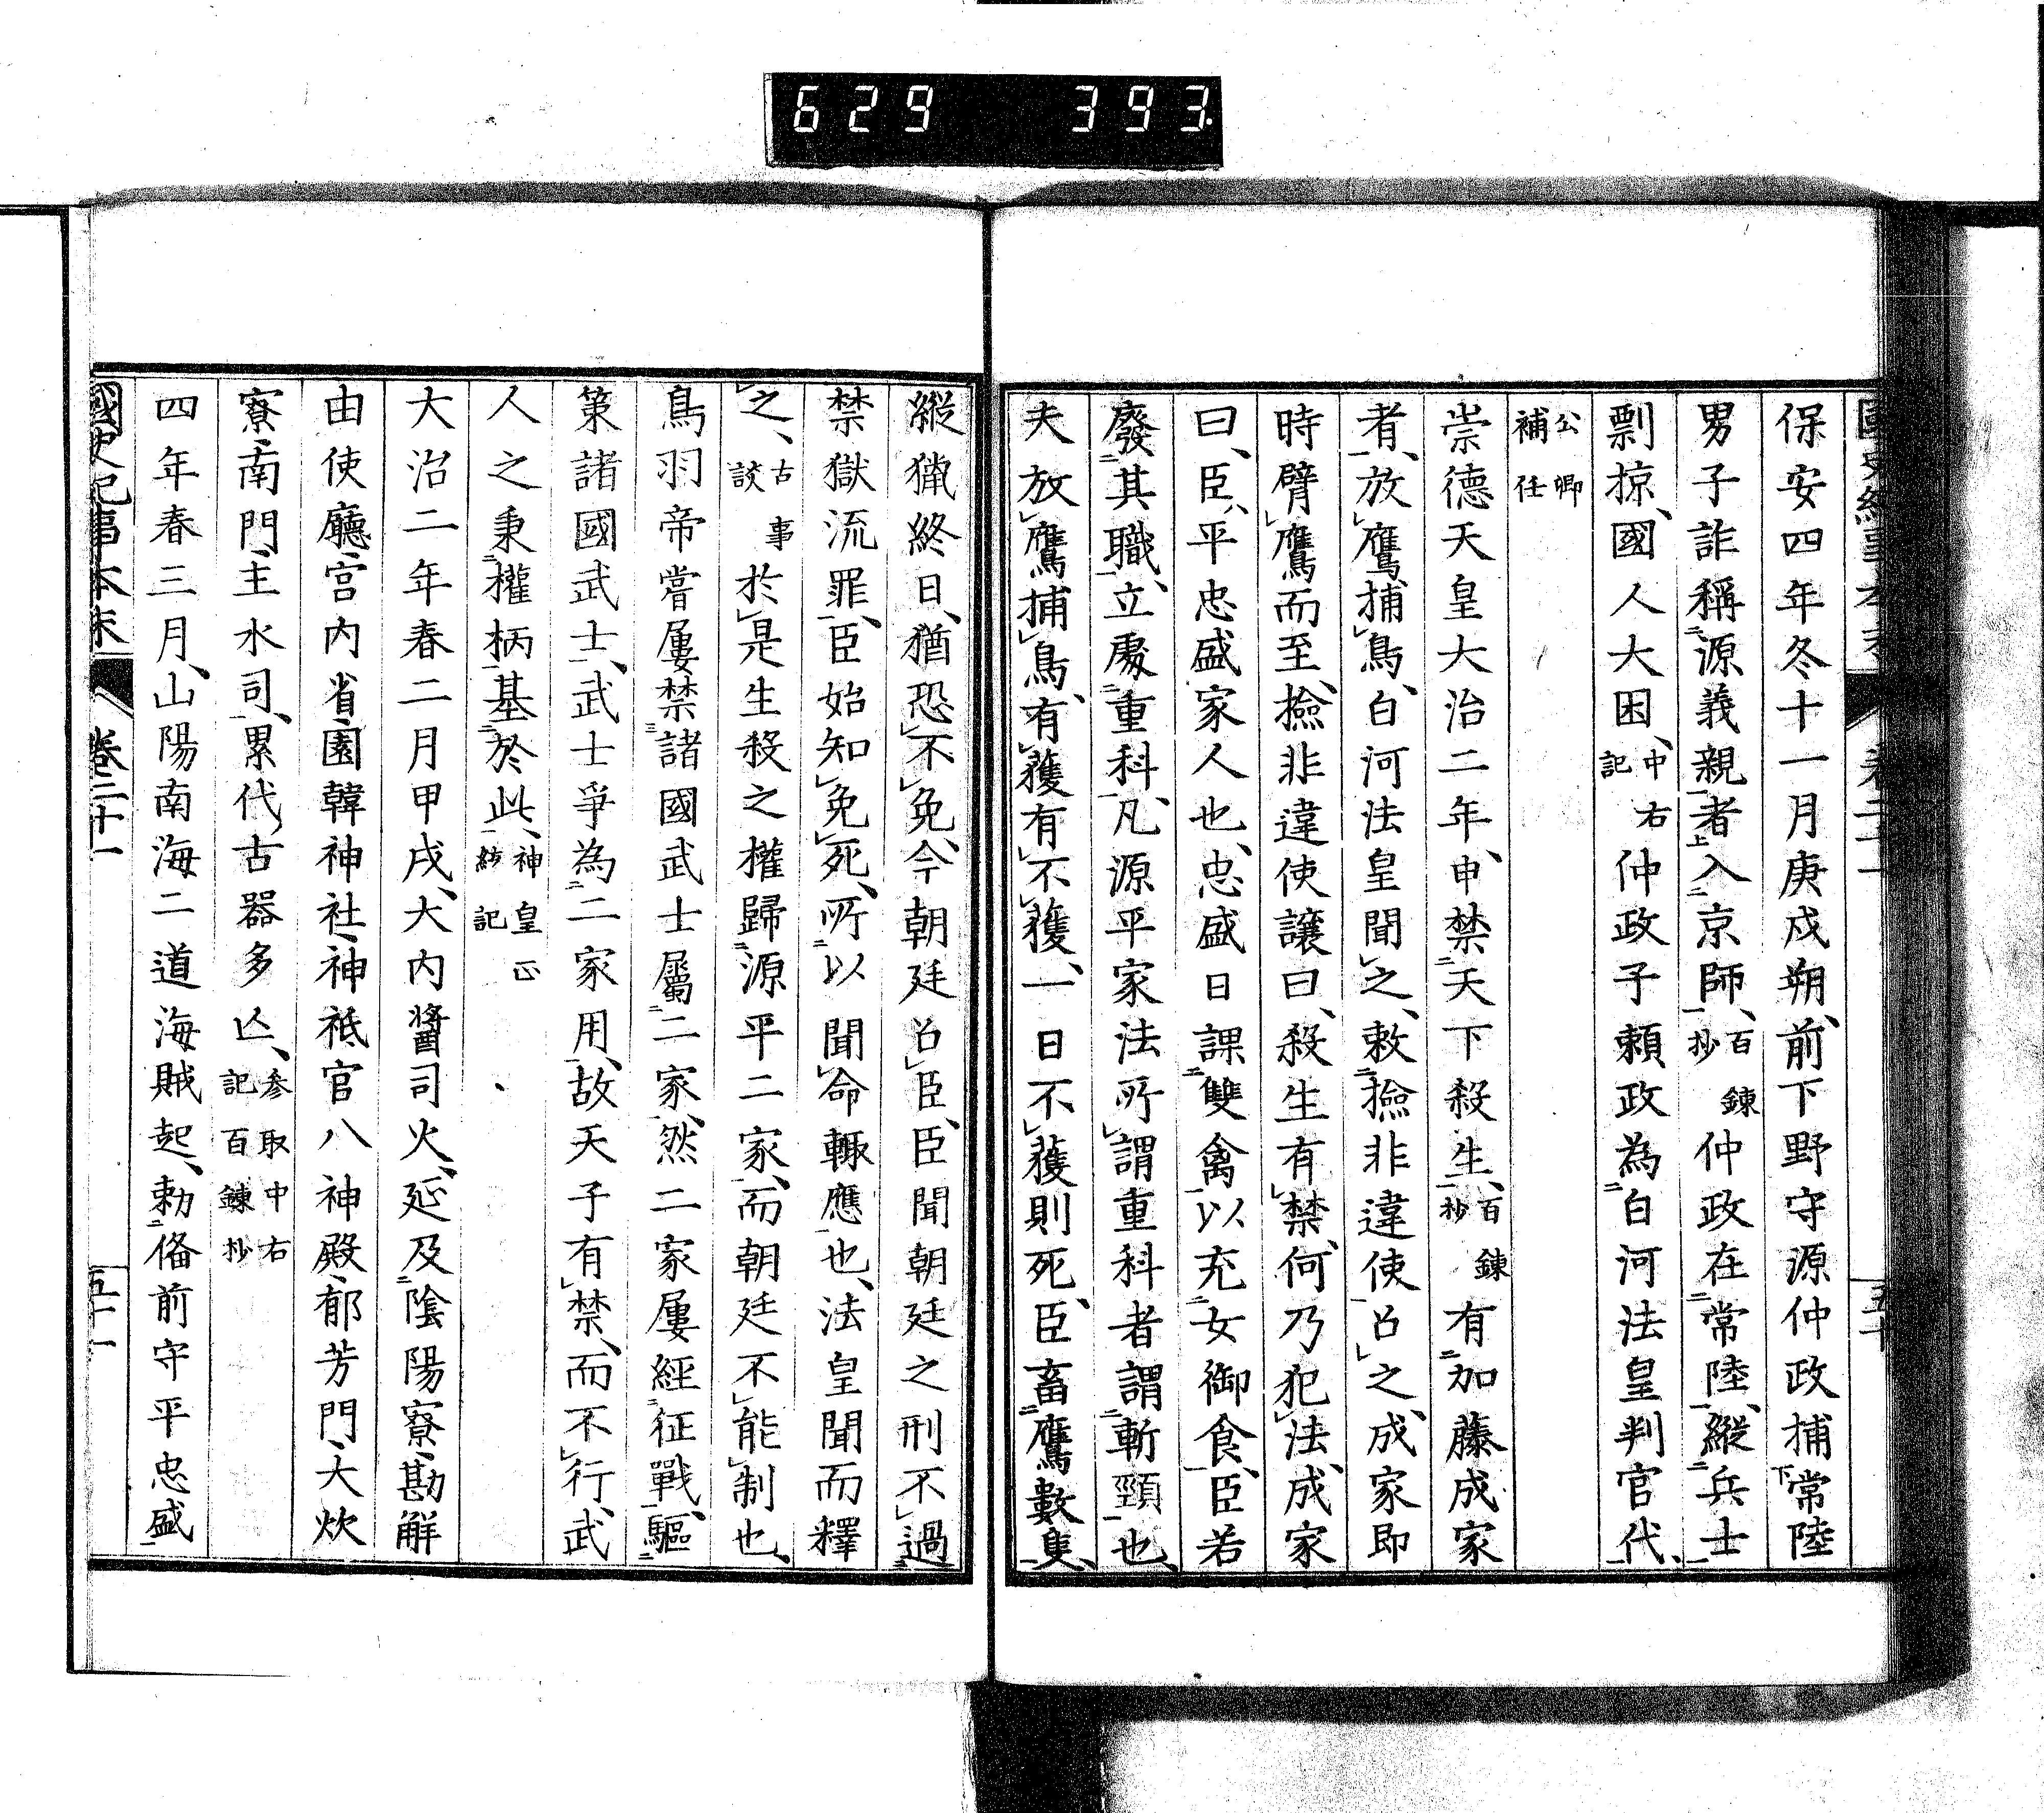 629 393
保安四年冬十一月庚戌朔、前下野守源仲政捕下常陸
男子詐稱二源義親一者上入二京師一、百錬抄仲政在二常陸一、縱二兵士一
剽掠、國人大困、中右記仲政子賴政為二白河法皇判官代一、
公卿補任
崇德天皇大治二年、申禁二天下殺生一、百錬抄有二加藤成家
者一、放レ鷹捕レ鳥、白河法皇聞レ之、敕二撿非違使一召レ之、成家即
時臂レ鷹而至、撿非違使讓曰、殺生有レ禁、何乃犯レ法、成家
曰、臣、平忠盛家人也、忠盛日課二雙禽一以充二女御食一、臣若
廢二其職一、立處二重科一、凡源平家法所レ謂重科者謂二斬頸一也、
夫放レ鷹捕レ鳥、有レ獲有レ不レ獲、一日不レ獲則死、臣畜二鷹數隻一、
縱獵終日、猶恐レ不レ免、今朝廷召レ臣、臣聞朝廷之刑不レ過二
禁獄流罪一、臣始知レ免レ死、所二以聞レ命輙應一也、法皇聞而釋
レ之、古事談於レ是生殺之權歸二源平二家一、而朝廷不レ能レ制也、
鳥羽帝嘗屢禁二諸國武士屬二二家一、然二家屢經二征戰一、驅二
策諸國武士一、武士爭為二二家用一、故天子有レ禁、而不レ行、武
人之秉二權柄一基二於此一、神皇正統記
大治二年春二月甲戌、大内醬司火、延及二陰陽寮、勘解
由使廳、宮内省、園韓神社、神祇官八神殿、郁芳門、大炊
寮、南門、主水司一、累代古器多亾、參取中右記百錬抄
四年春三月、山陽南海二道海賊起、勅二備前守平忠盛一
國史紀事本末 卷二十一 五十一